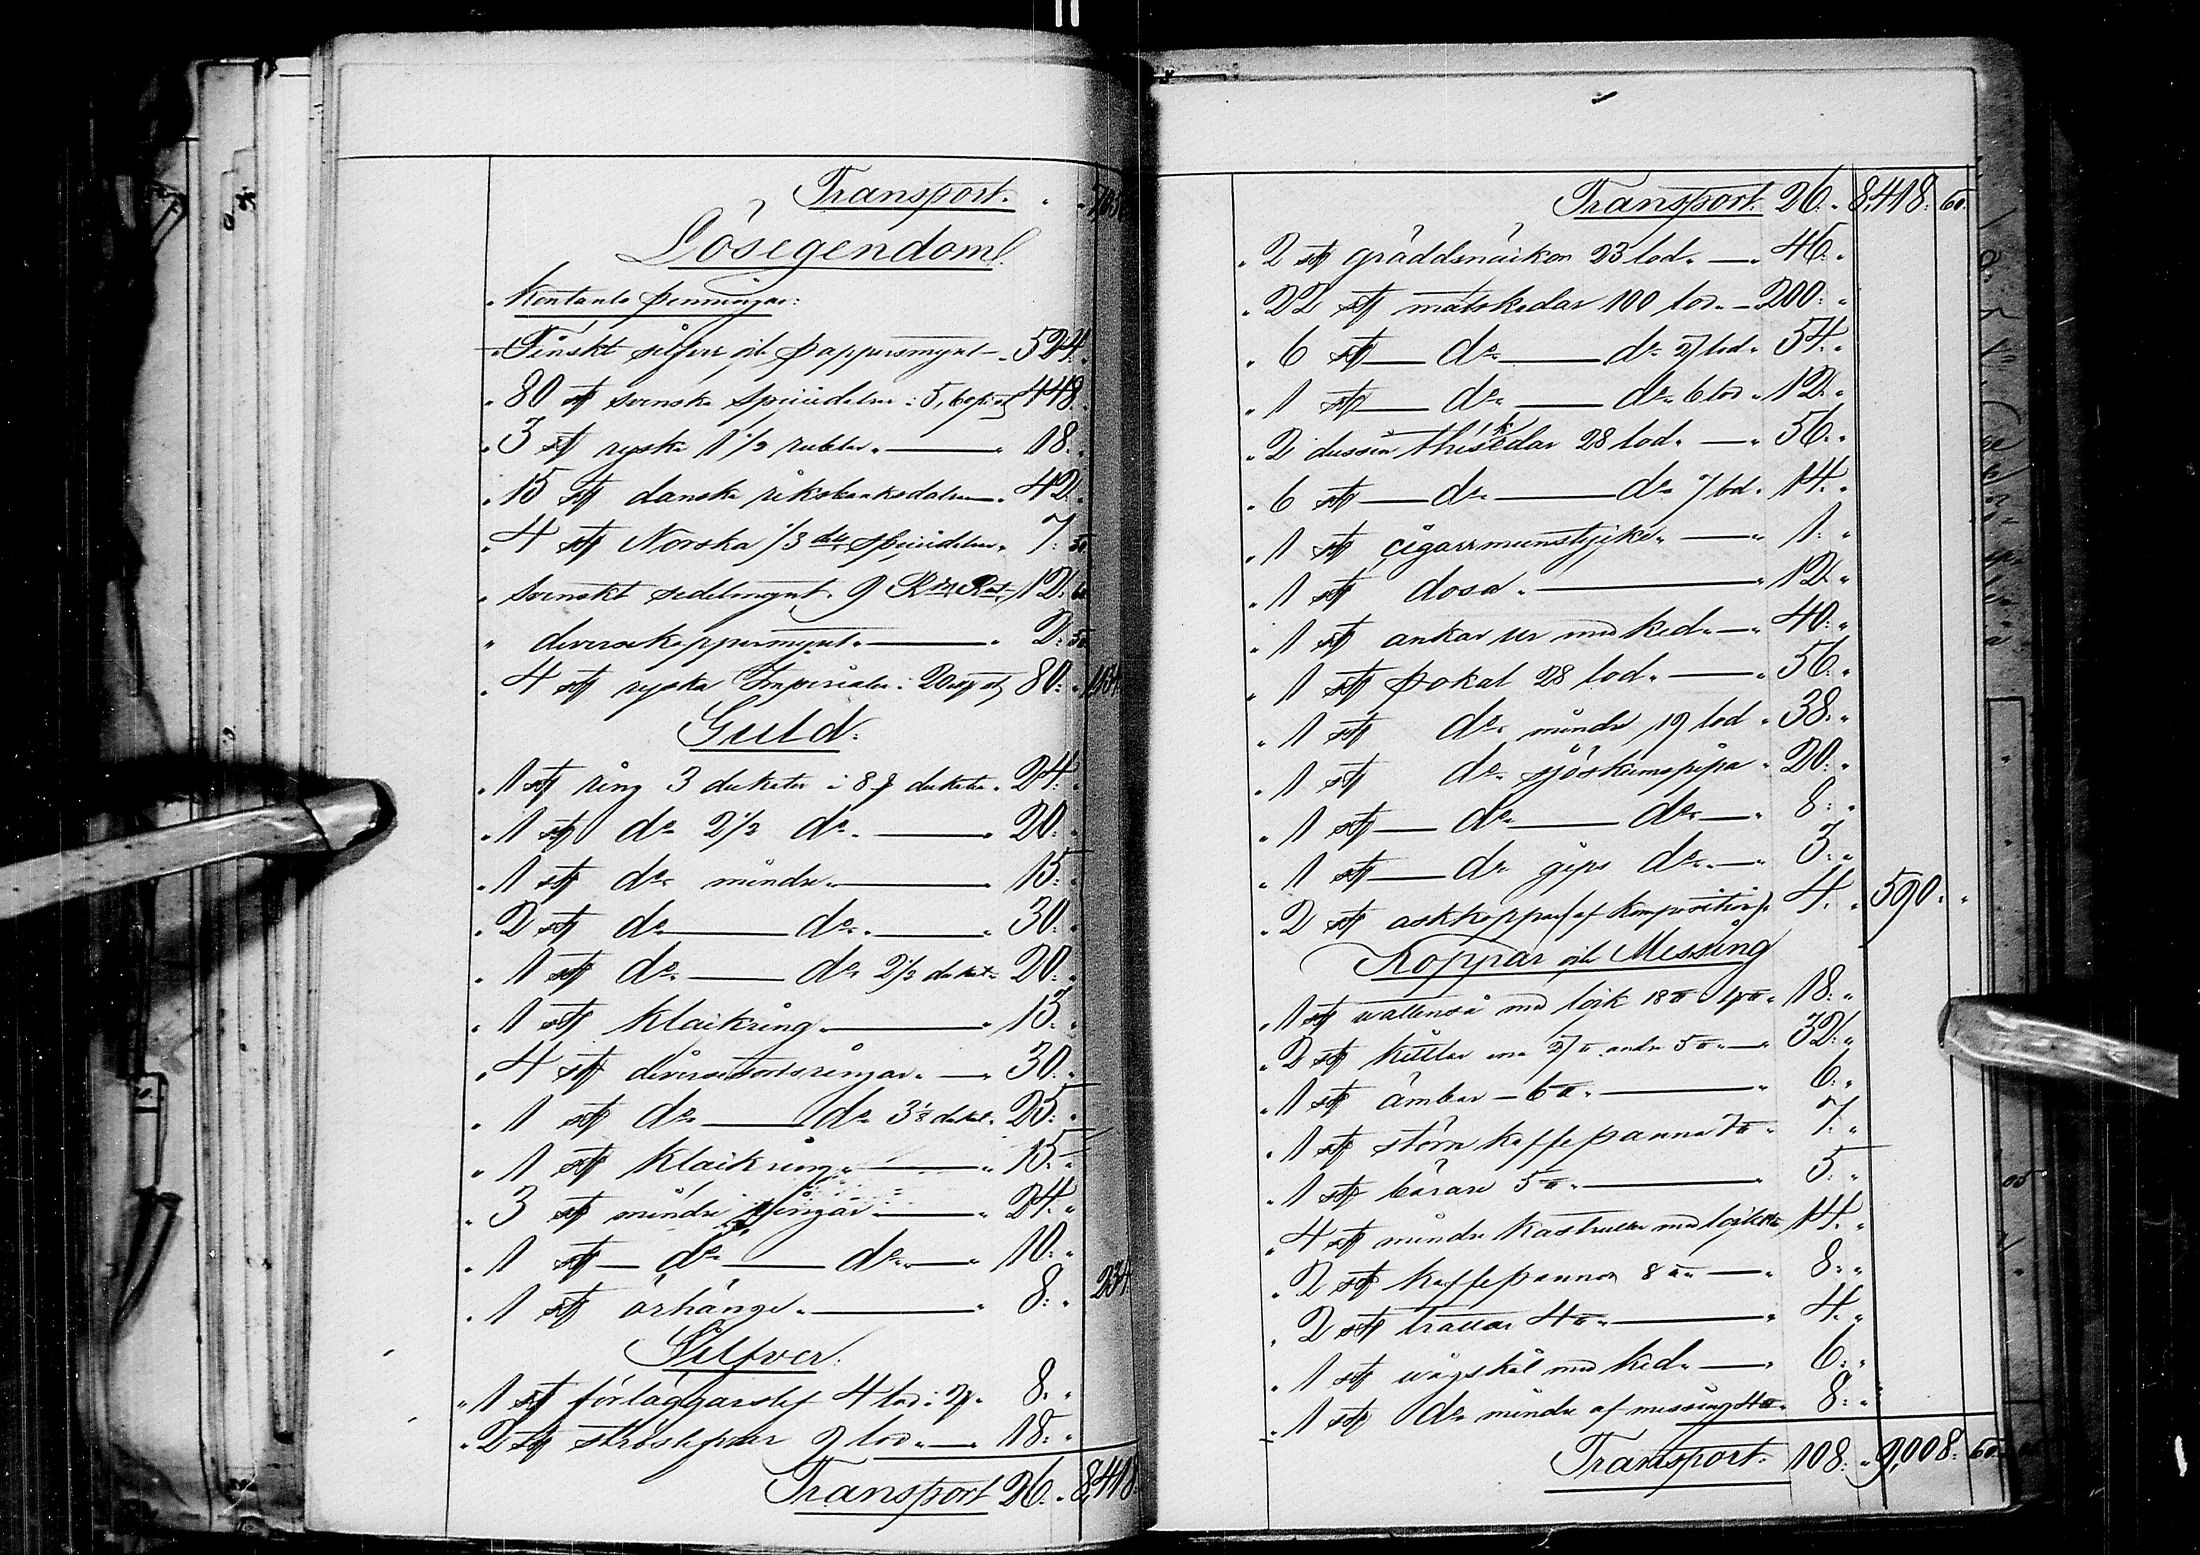 Transport. " "
Lösegendom.
" Kontanta penningar:
" Finskt silfver och pappersmynt — " 524: "
" 80 st svenska Speciedaler: 5,60 p st 448: "
" 3 st ryska 1 1/2 rubler " — " 18: "
" 15 st danska riksbanksdaler — " 42: "
" 4 st Norska 1/3 dels Speciedaler " 7: 50
" svenskt sedelmynt 9 Rdr Rmt 12: 60
" diverse kopparmynt " — " 2: 50
" 4 st ryska Imperialer: 20 p st 80: "
Guld:
" 1 st ring 3 dukater à 8 dukaten " 24: "
" 1 st do 2 1/2 do " — " 20: "
" 1 st do mindre " — " 15: "
" 2 st do — do " — " 30: "
" 1 st do — do 2 1/2 dukat " 20: "
" 1 st klackring " — " 13: "
" 4 st diverse sorts ringar " — " 30: "
" 1 st do — do 3 1/8 dukat " 25: "
" 1 st klackring " — " 15: "
" 3 st mindre ringar — " 24: "
" 1 st — do — do " — " 10: "
" 1 st örhänge " — " 8: " 234
Silfver:
" 1 st förläggarslef 4 lod: 2 " 8: "
" 2 st ströslefvar 9 lod " — " 18: "
Transport 26: " 8,418:
Transport: 26: " 8,418: 60:
" 2 st gräddsnäckor 23 lod " — " 46: "
" 22 st matskedar 100 lod " — 200: "
" 6 st — do — do 27 lod " 54: "
" 1 st — do — do 6 lod " 12: "
" 2 dussin theskedar 28 lod " — " 56: "
" 6 st — do — do 7 lod " 14: "
" 1 st cigarrmunstycke " — " 1: "
" 1 st dosa " — " 12: "
" 1 st ankar ur med ked " — " 40: "
" 1 st pokal 28 lod " — " 56: "
" 1 st do mindre 19 lod " 38: "
" 1 st do sjöskumspipa " 20: "
" 1 st — do — do — " 8: "
" 1 st — do gips do " — " 3: "
" 2 st askkoppar (af komposition) " 4: " 590: "
Koppar och Messing
" 1 st vattenså med lock 18 " 18: "
" 2 st kittlar ena 27 andra 5 " — " 32: "
" 1 st ämbar — 6 " — " 6: "
" 1 st större kaffepanna 7 " 7: "
" 1 st bärare 5 " — " 5: "
" 4 st mindre kastruller med lock 14: "
" 2 st kaffepannor 8 " — " 8: "
" 2 st trattar 4 " — " 4: "
" 1 st vågskål med ked " — " 6: "
" 1 st do mindre af messing " 8: "
Transport: 108: " 9,008: 60